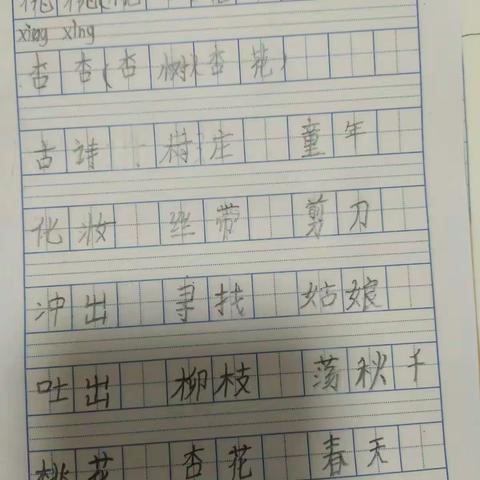 xìng xìng
杏 杏(杏树)(杏花)
古诗 村庄 童年
化妆 丝带 剪刀
冲出 寻找 姑娘
吐出 柳枝 荡秋千
桃花 杏花 春天